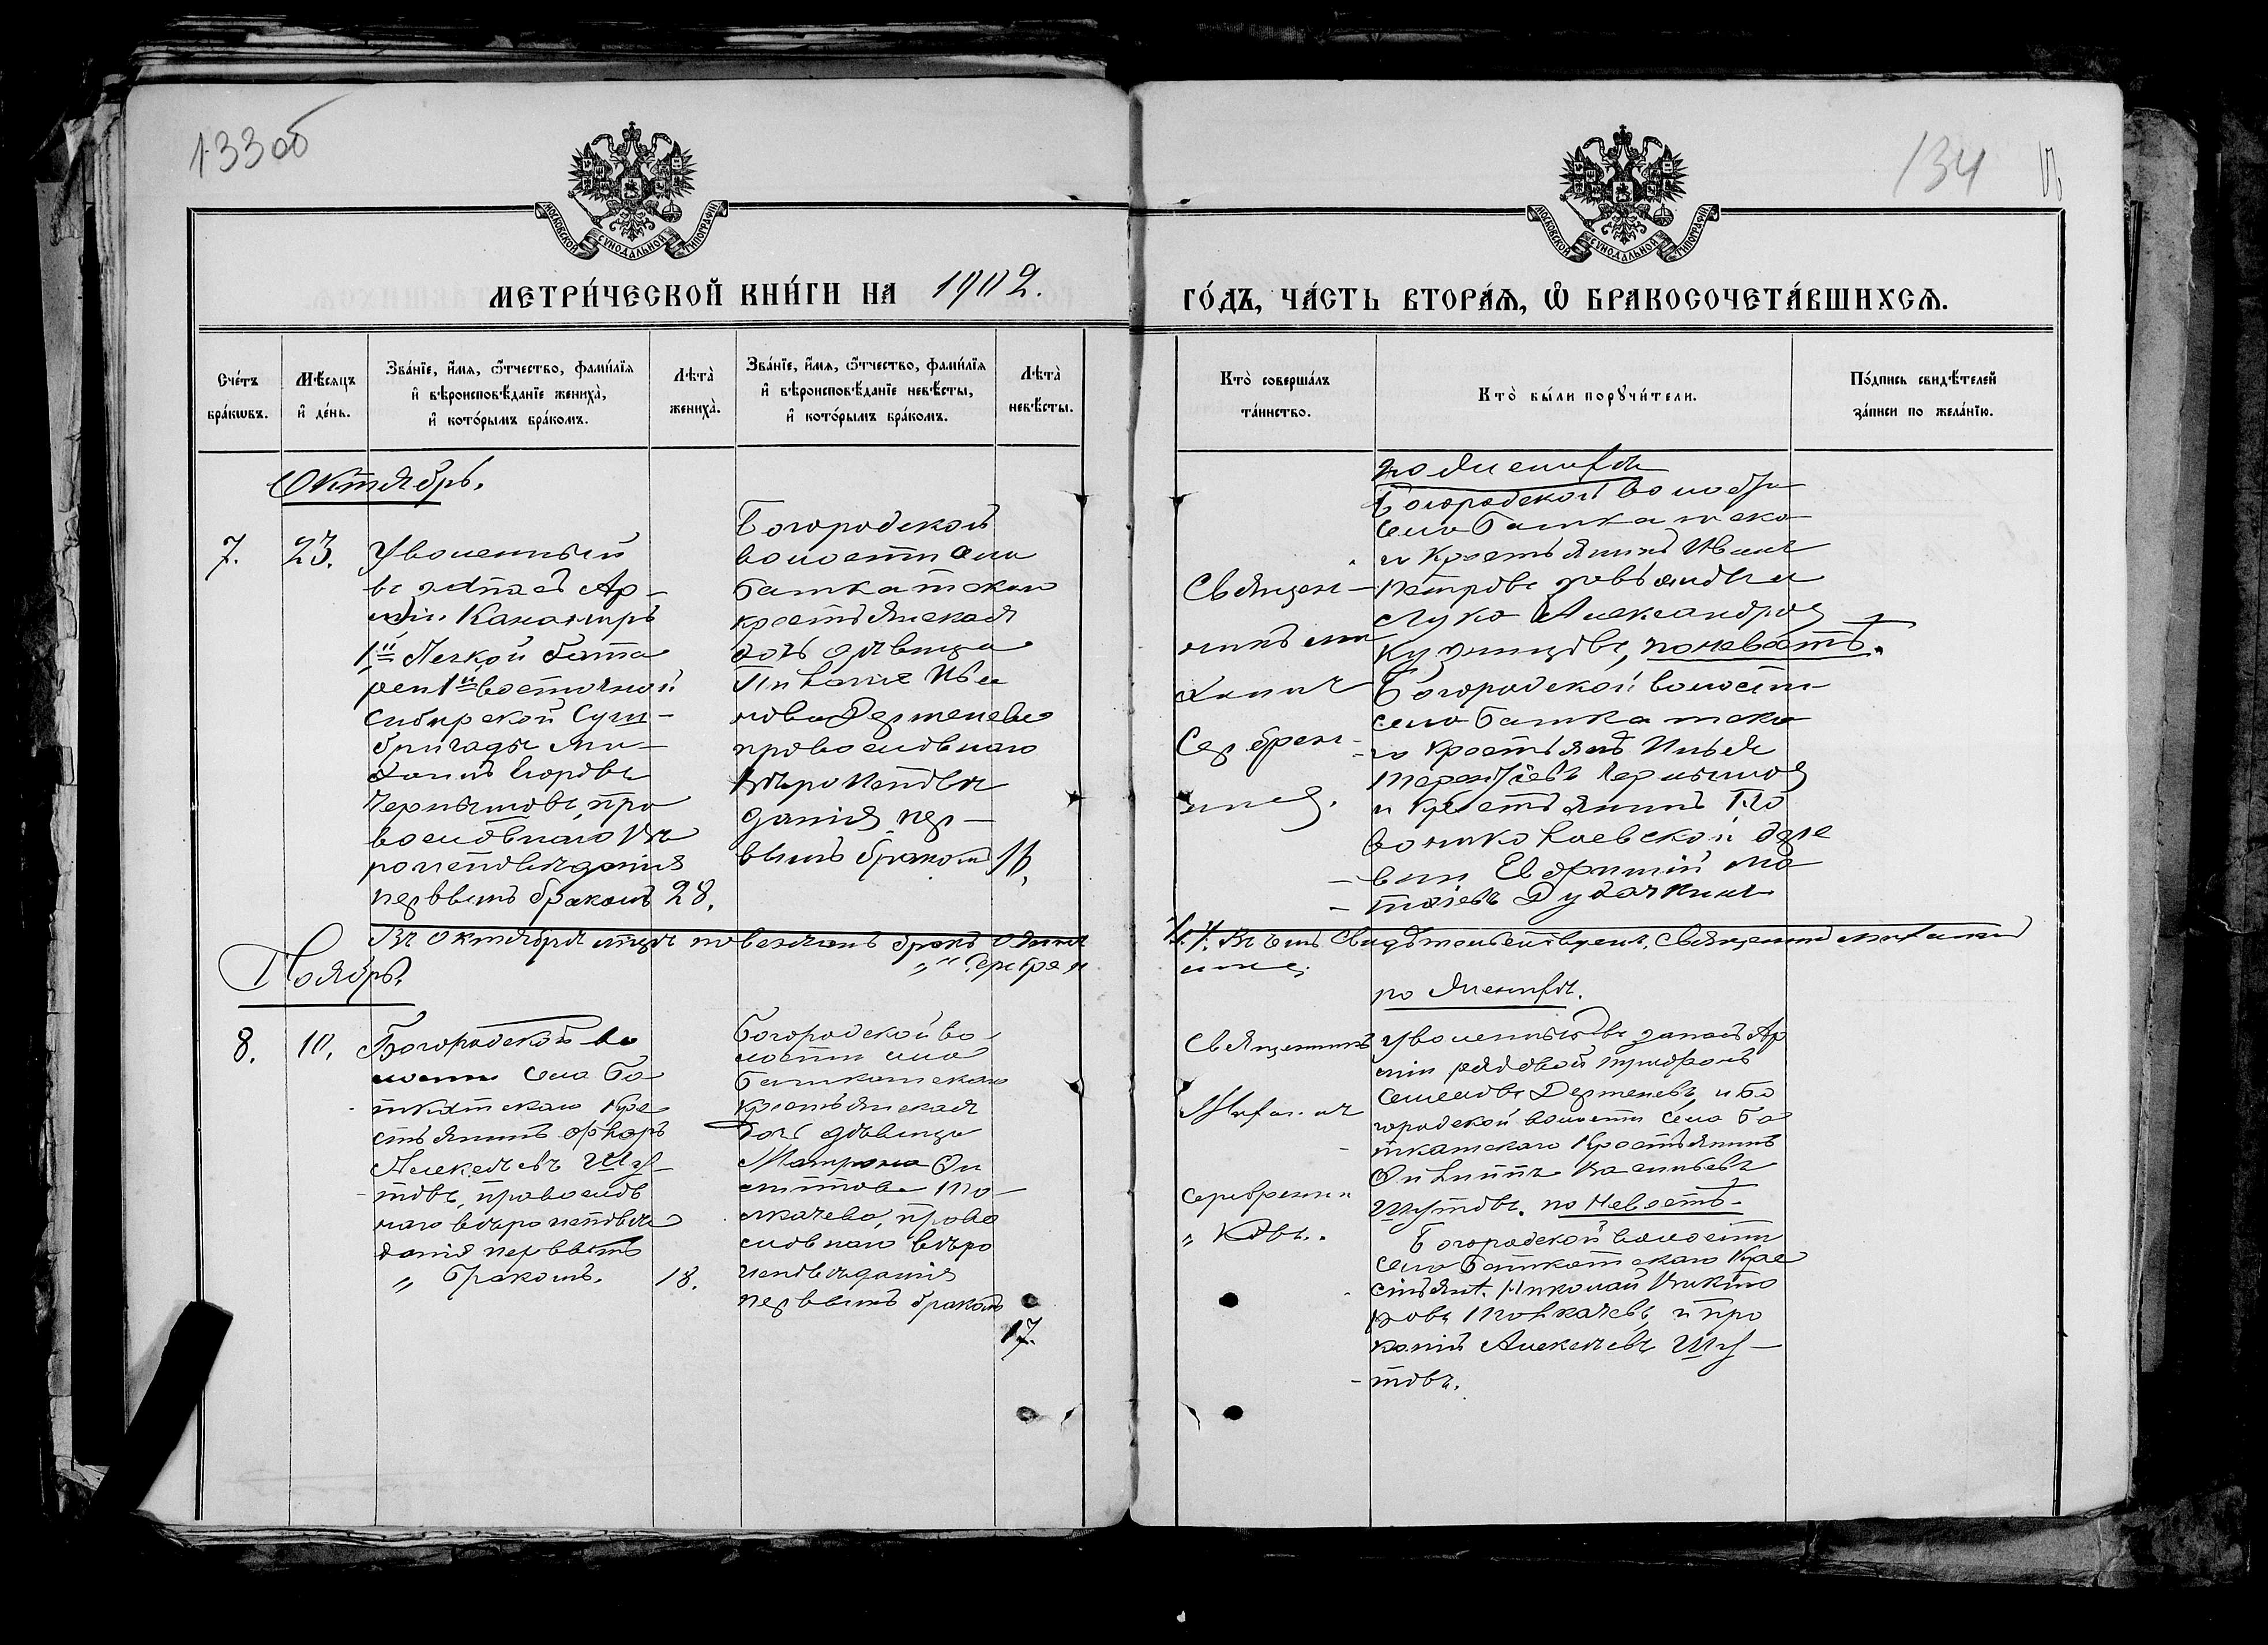 133об
134
МОСКОВСКОЙ СѴНОДАЛЬНОЙ ТИПОГРАФІИ
МОСКОВСКОЙ СѴНОДАЛЬНОЙ ТИПОГРАФІИ
МЕТРИ́ЧЕСКОЙ КНИ́ГИ НА 1902.
ГО́ДЪ, ЧА́СТЬ ВТОРА́Ѧ, Ѽ БРАКОСОЧЕТА́ВШИХСѦ.
Сче́тъ
бра́кѡвъ.
Мѣ́сяцъ
и҆ де́нь.
Зва́нїе, и҆́мѧ, ѻ҆́тчество, фами́лїѧ
и҆ вѣроисповѣ́данїе жениха̀,
и҆ кото́рымъ бра́комъ.
Лѣта̀
жениха̀.
Зва́нїе, и҆́мѧ, ѻ҆́тчество, фами́лїѧ
и҆ вѣроисповѣ́данїе невѣ́сты,
и҆ кото́рымъ бра́комъ.
Лѣта̀
невѣ́сты.
Кто̀ соверша́лъ
та́инство.
Кто̀ бы́ли порꙋчи́тели.
По́дпись свидѣ́телей
за́писи по жела́нїю.
Октябрь.
7.
23.
Уволенный
въ запасъ Ар-
міи Канониръ
1й Легкой бата
реи 1й восточной
Сибирской
бригады Ми-
хаилъ Егоровъ
Чернышовъ, пра
вославнаго вѣ
роисповѣданія
первымъ бракомъ
28.
Богородской
волости села
Башкатскаго
крестьянская
дочь дѣвица
Ива
нова Дерменева
православнаго
вѣроисповѣ
данія пер-
вымъ бракомъ
16.
Священ-
никъ Ми
хаилъ
Серебрен-
никовъ.
по женихѣ
Богородской волости
села Башкатска
го крестьянинъ Иванъ
Петровъ
Лука Александровъ
Кузнецовъ, по невѣстѣ.
Богородской волости
села Башкатска
го крестьяне Илья
Терентіевъ Чернышовъ
и крестьянинъ Но
вониколаевской дере
вни Евфимій Ма
Въ октябрѣ мѣсяцѣ повѣнчанъ бракъ одинъ
Въ чемъ свидѣтельствуемъ. Священникъ Михаилъ
Ноябрь.
8.
10.
Богородской во
лости села Ба
шкатскаго кре
стьянинъ
Алексѣевъ Шу-
товъ, православ
наго вѣроисповѣ
данія первымъ
„ бракомъ.
18.
Богородской во-
лости села
Башкатскаго
крестьянская
дочь дѣвица
Матрона Фи
липпова То-
лкачева, право
славнаго вѣро
исповѣданія
первымъ бракомъ
17.
Священникъ
Михаилъ
Серебренни
„ ковъ.
по женихѣ.
Уволенный въ запасъ Ар
міи рядовой Трифонъ
Семеновъ Дерменевъ, и Бо
городской волости села Ба
шкатскаго крестьянинъ
Филиппъ Васильевъ
Шутовъ. по невѣстѣ.
Богородской волости
села Башкатскаго кре
стьян. Николай Викто
ровъ Толкачевъ, и Про
копій Алексѣевъ Шу-
товъ.